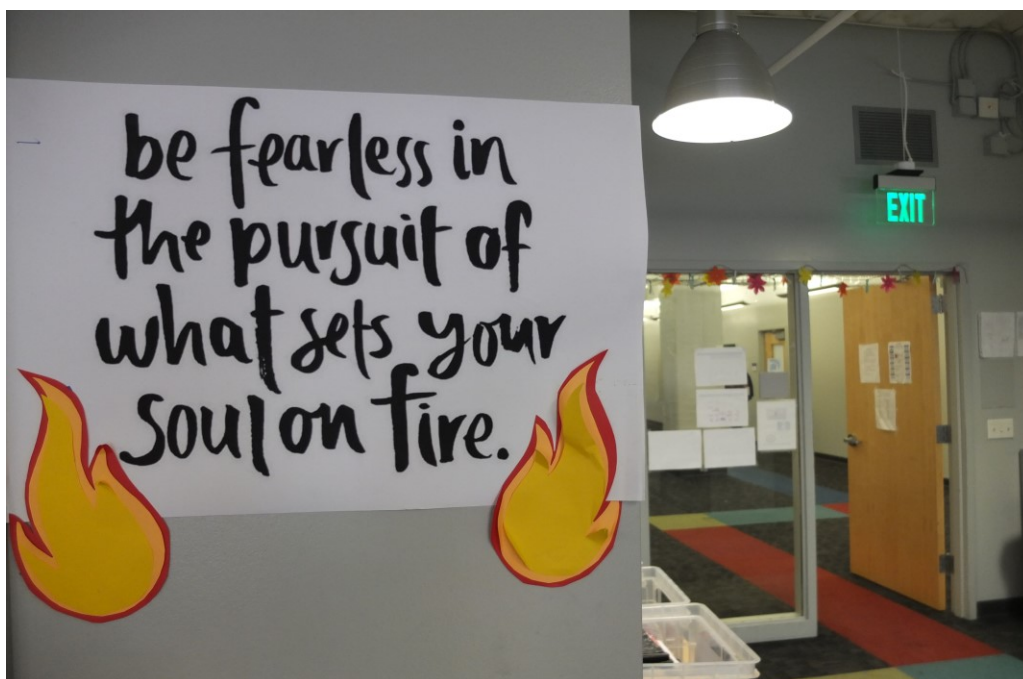 be fearless in
the pursuit of
what sets your
soul on fire.
EXIT